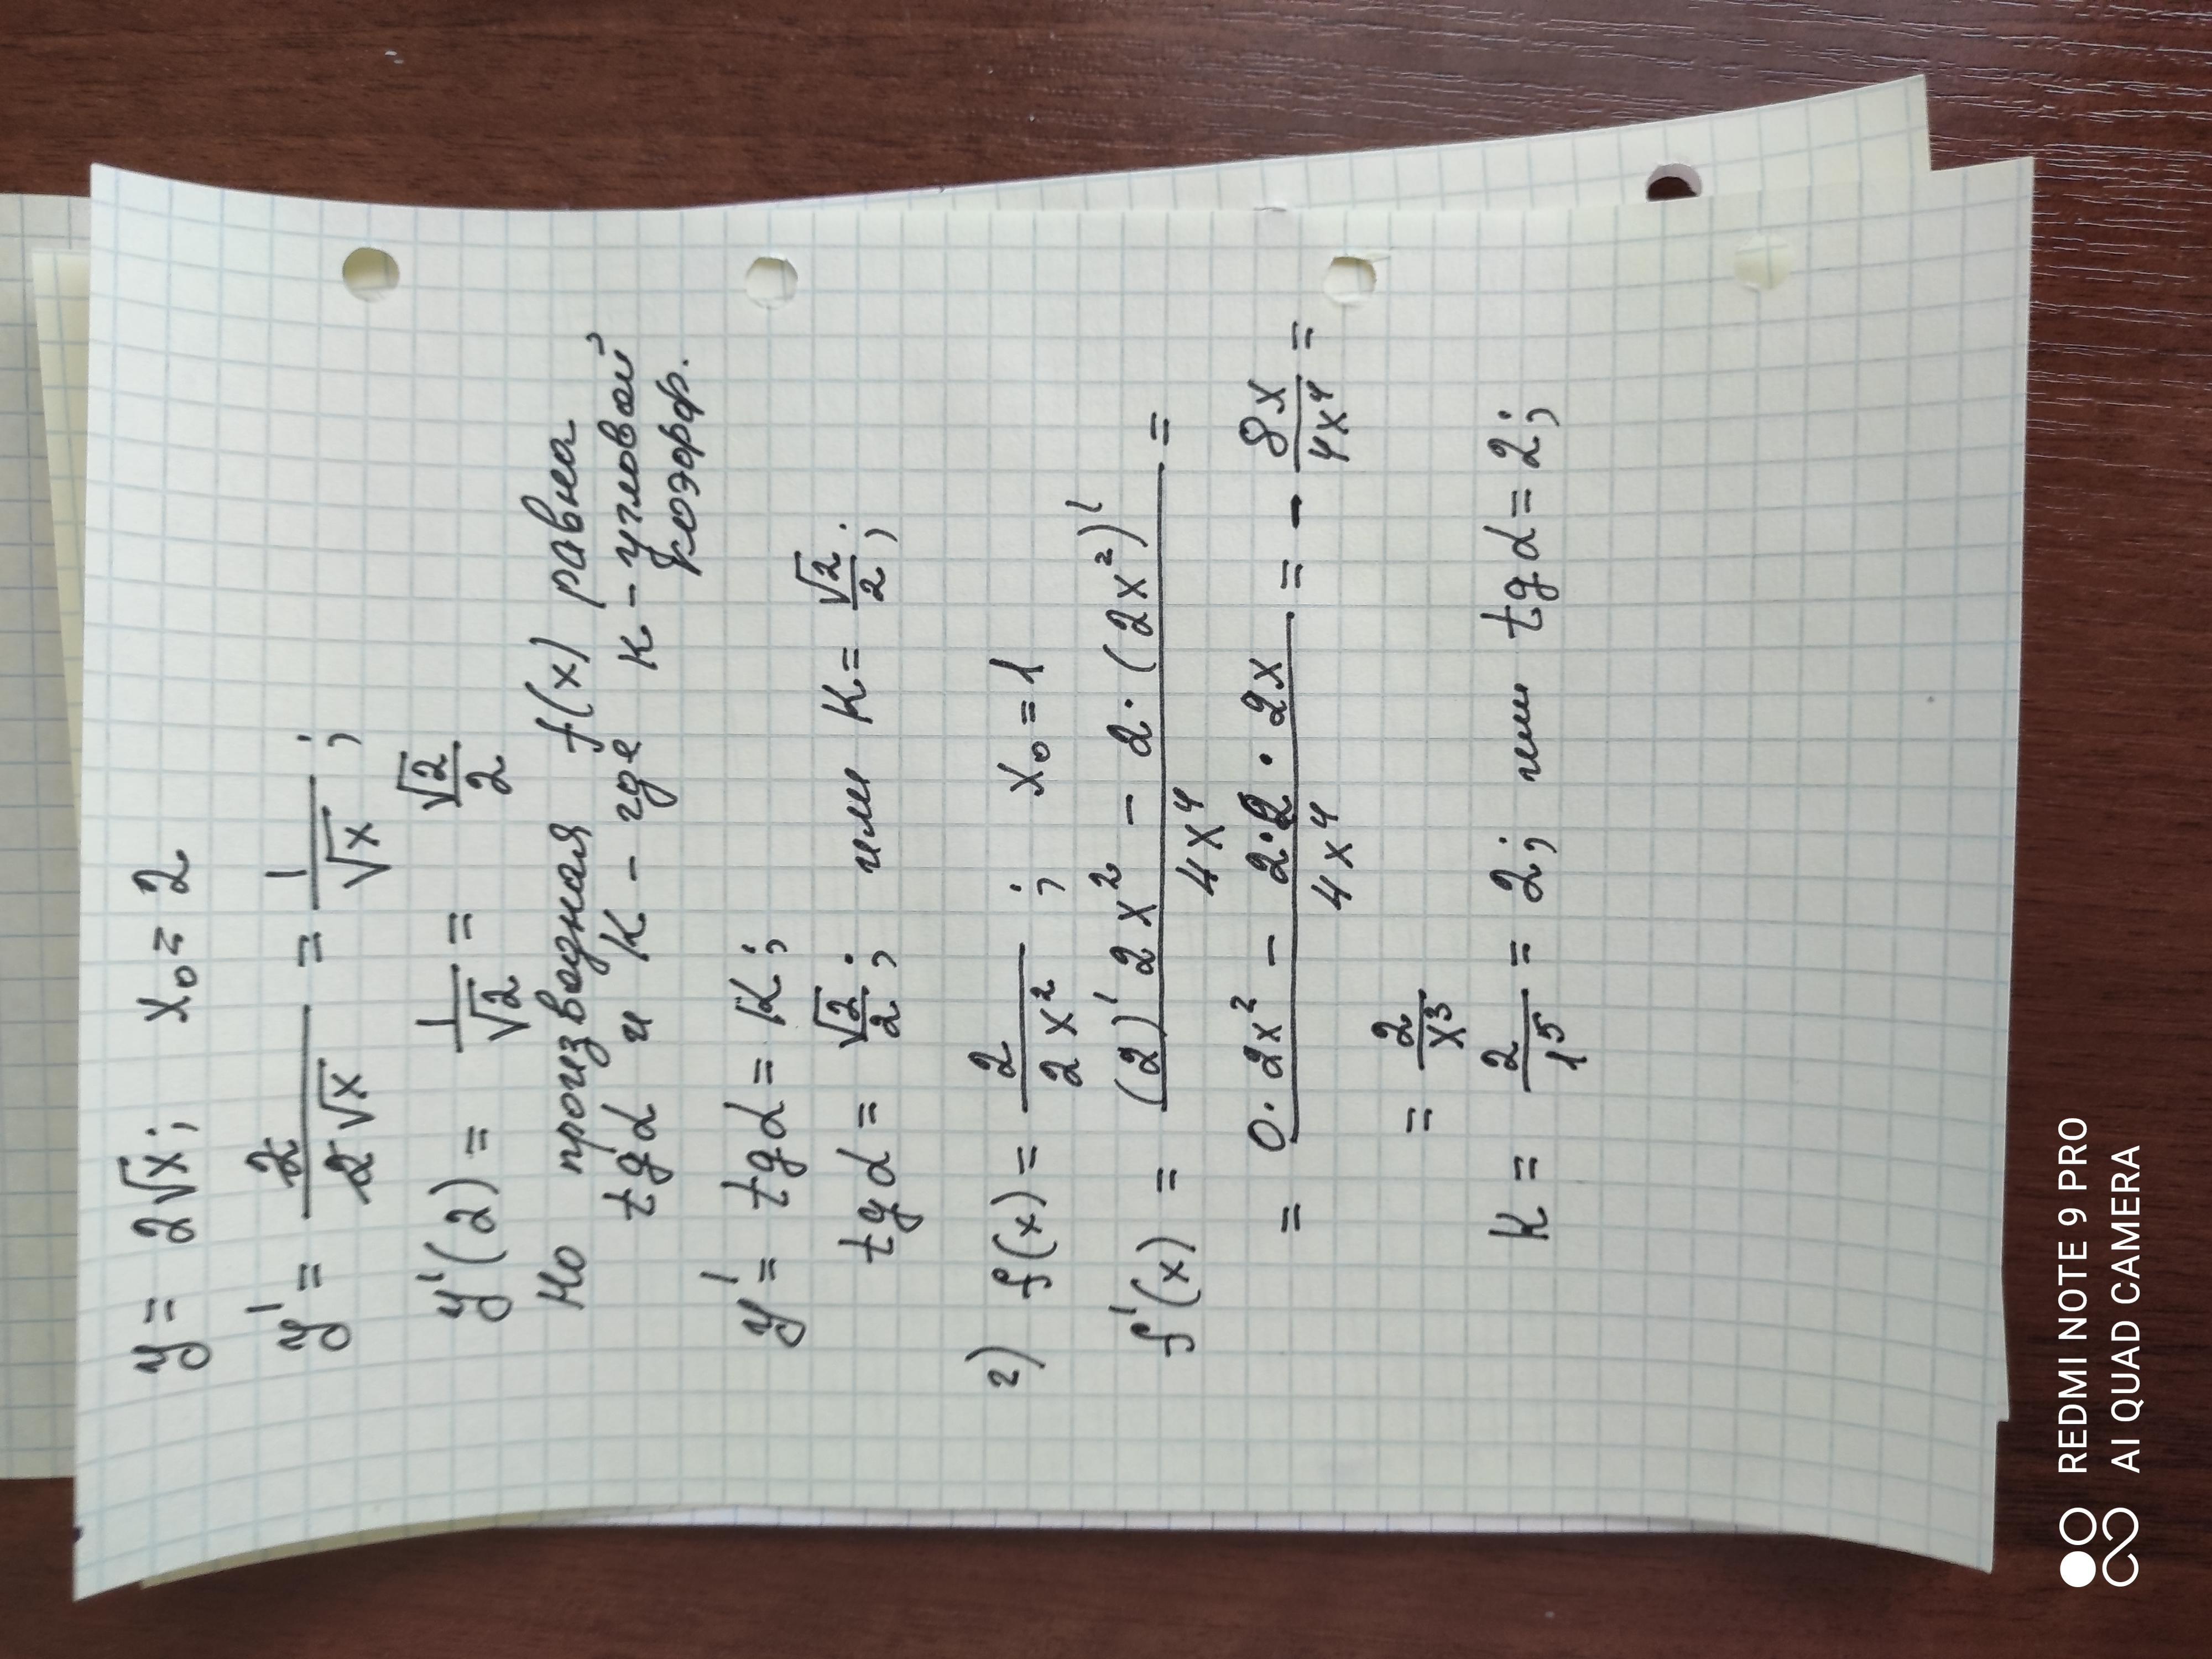 y = 2√x; x₀ = 2
y' = 2/2√x = 1/√x;
y'(2) = 1/√2 = √2/2
Но производная f(x) равна
tgα и K - где K - угловой
коэфф.
y' = tgα = K;
tgα = √2/2; или K = √2/2;
2) f(x) = 2/2x²; x₀ = 1
f'(x) = (2)' 2x² - 2·(2x²)'/4x⁴ =
= 0·2x² - 2·2·2x/4x⁴ = - 8x/4x⁴ =
= 2/x³
K = 2/1⁵ = 2; или tgα = 2;
REDMI NOTE 9 PRO
AI QUAD CAMERA